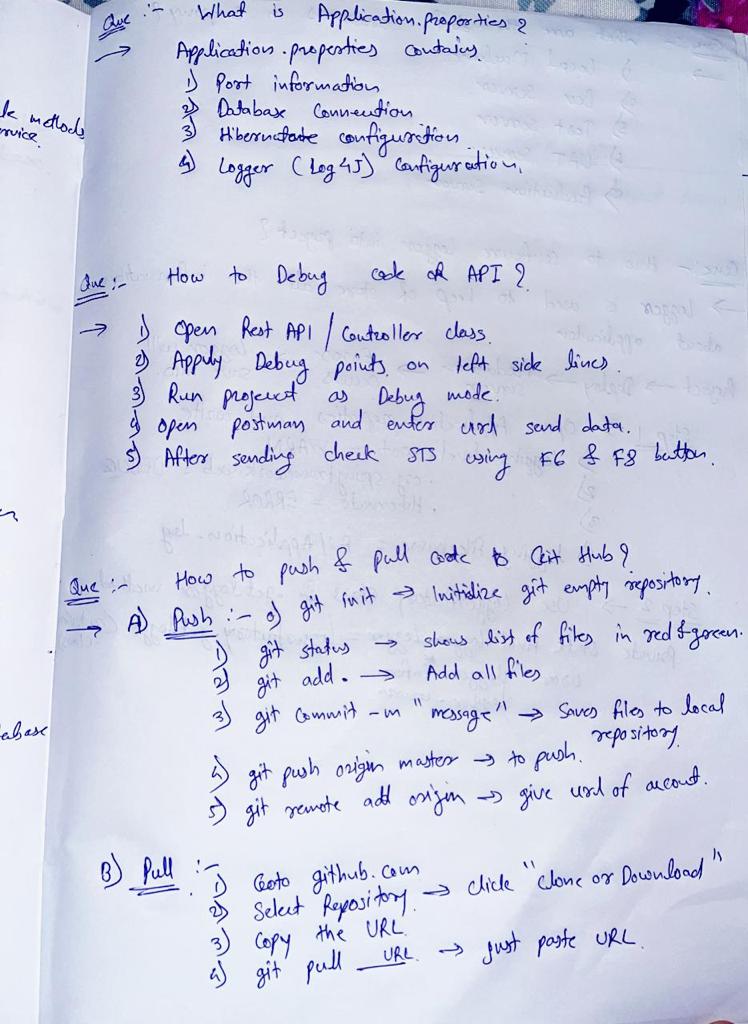 Que :- What is Application.properties ?
→ Application.properties contains.
1) Port information
2) Database Connection
3) Hibernatate configuration
4) Logger (Log4J) Configuration,
le methods
ervice.
Que :- How to Debug code of API ?
→ 1) Open Rest API / Controller class.
2) Apply Debug points on left side lines.
3) Run project as Debug mode.
4) open postman and enter url send data.
5) After sending check STS using F6 & F8 button.
Que :- How to push & pull code to Git Hub ?
→ A) Push :- 0) git init → Initialize git empty repository.
1) git status → shows list of files in red & green.
2) git add . → Add all files
3) git Commit -m "message" → Saves files to local
repository
4) git push origin master → to push.
5) git remote add origin → give url of account.
abase
B) Pull :-
1) Goto github.com
2) Select Repository → click "Clone or Download"
3) Copy the URL
4) git pull URL → just paste URL.